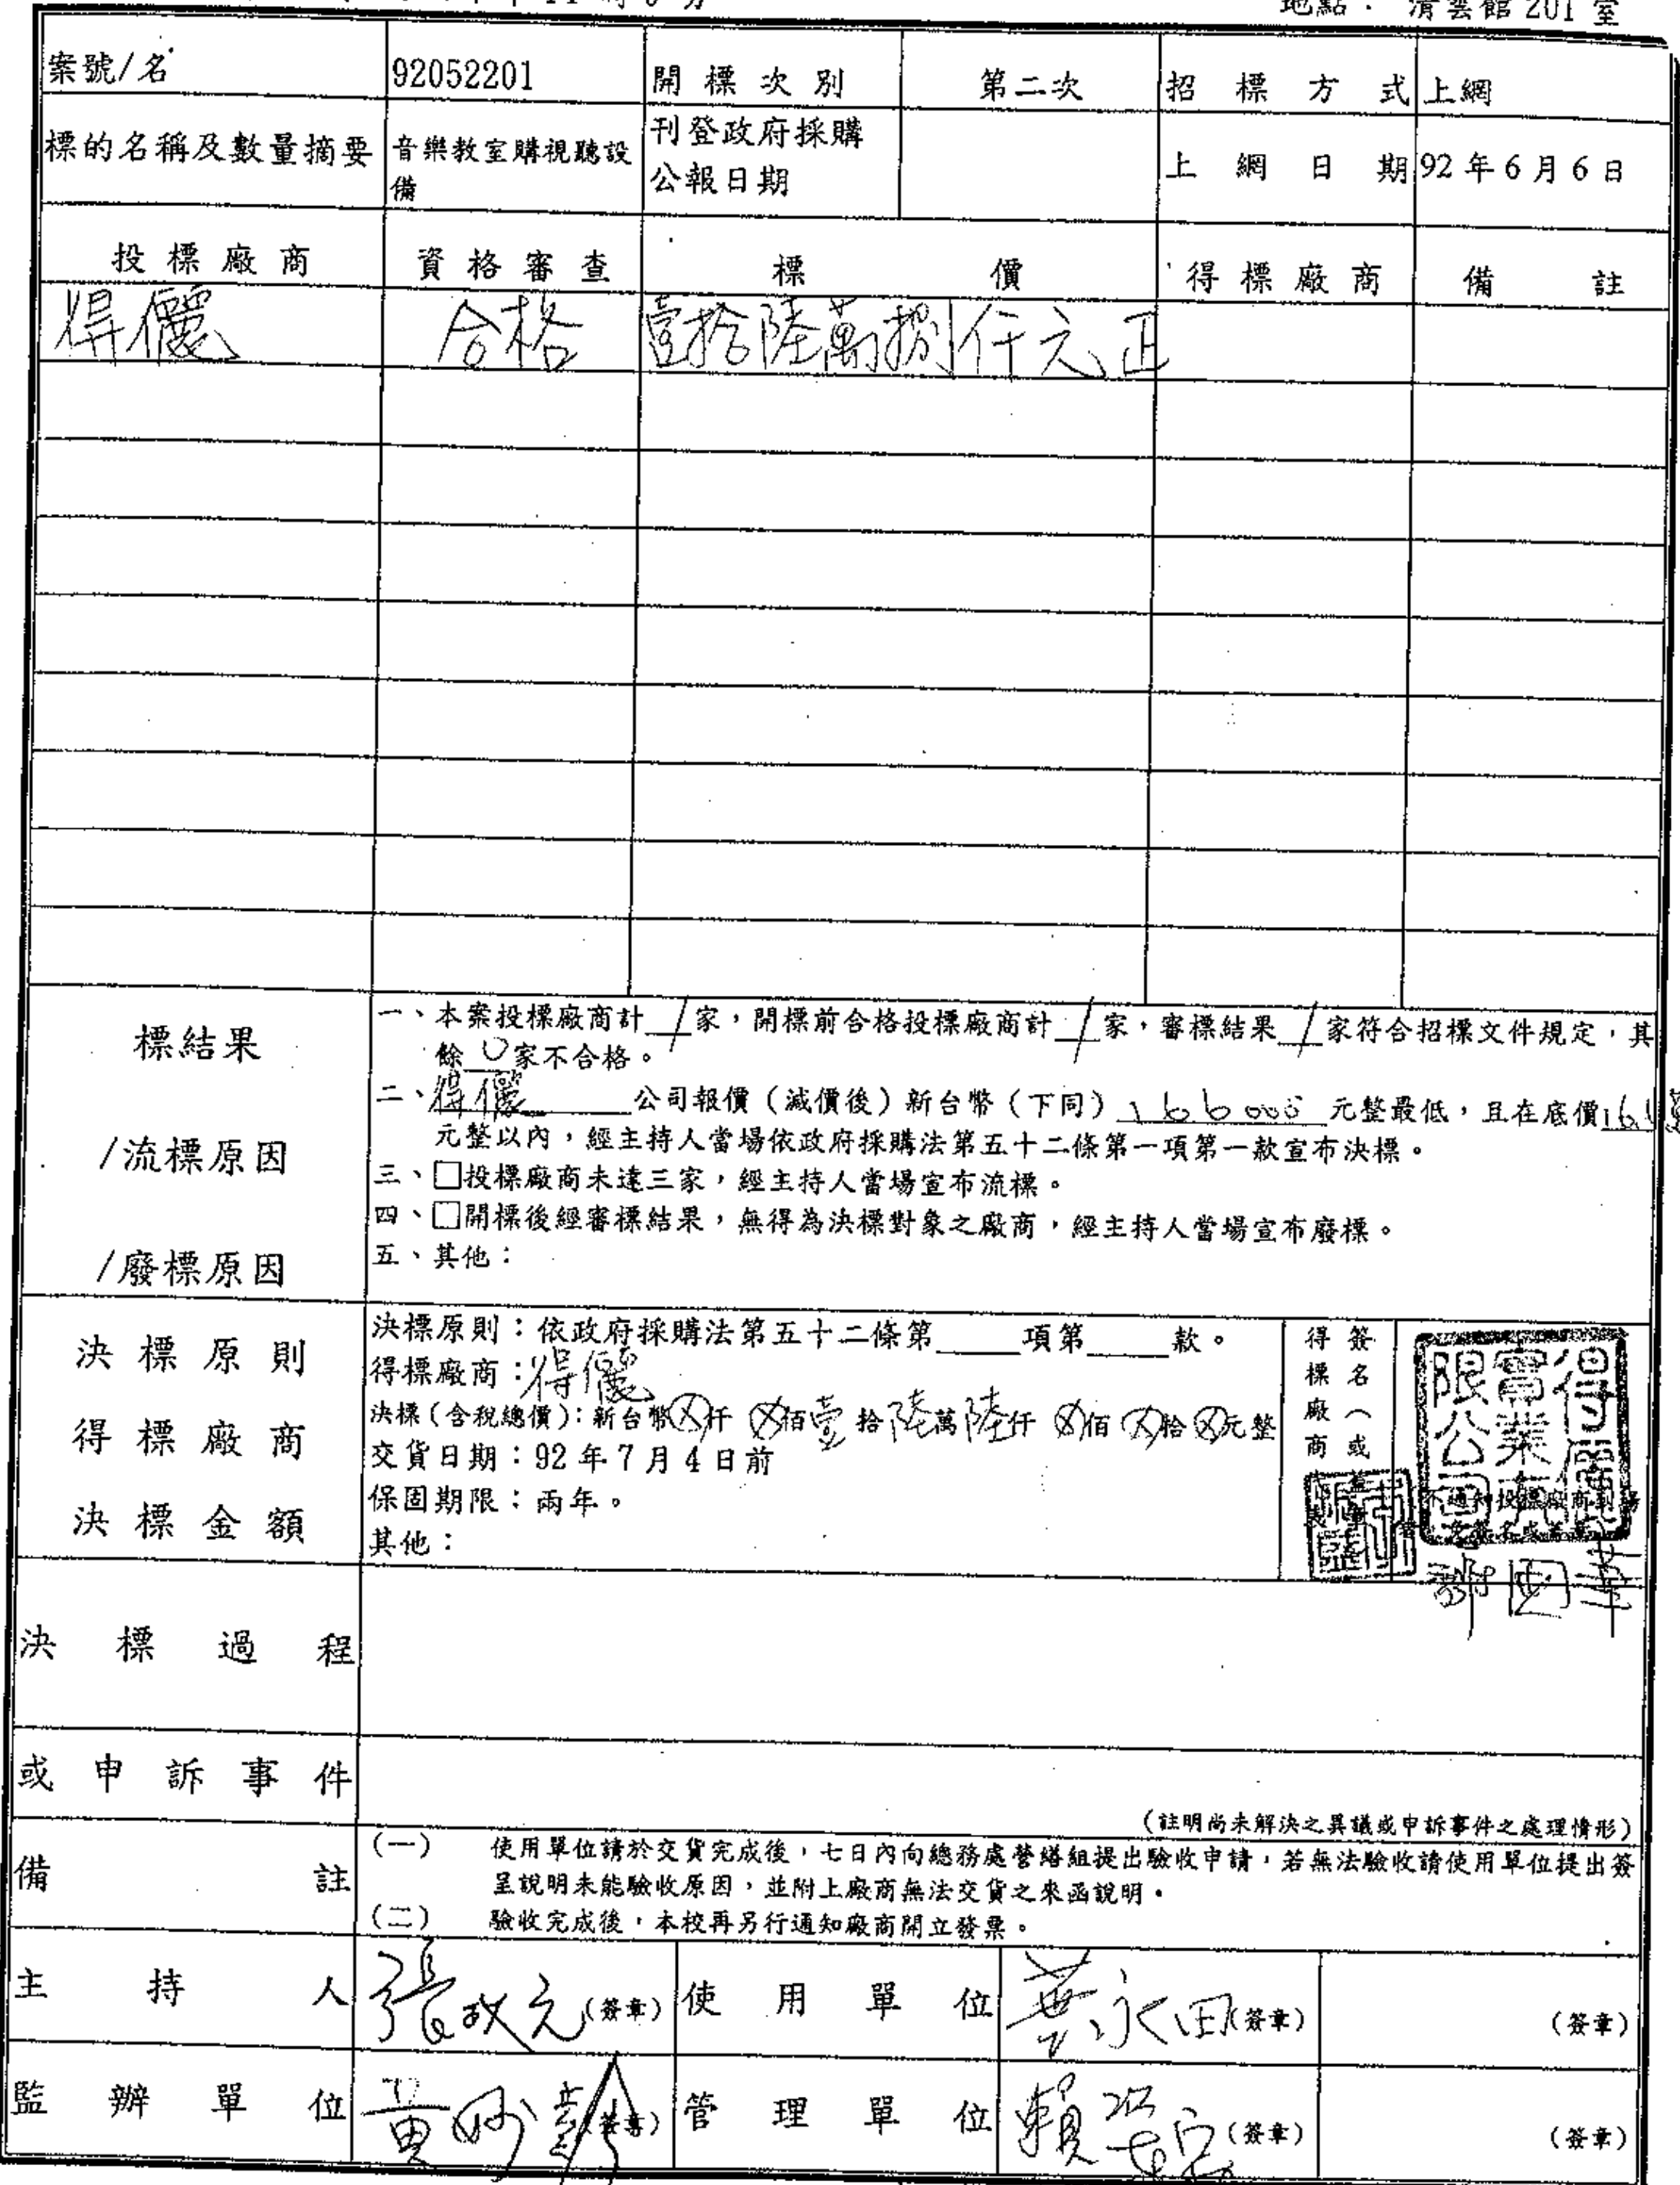 地點： 清雲館 201 室
案號/名 92052201 開標次別 第二次 招標方式 上網
標的名稱及數量摘要 音樂教室購視聽設備 刊登政府採購公報日期 上網日期 92 年 6 月 6 日
投標廠商 資格審查 標價 得標廠商 備註
得儷 合格 壹拾陸萬捌仟元正
標結果
/流標原因
/廢標原因
一、本案投標廠商計 1 家，開標前合格投標廠商計 1 家，審標結果 1 家符合招標文件規定，其
餘 0 家不合格。
二、得儷 公司報價（減價後）新台幣（下同） 166000 元整最低，且在底價
元整以內，經主持人當場依政府採購法第五十二條第一項第一款宣布決標。
三、□投標廠商未達三家，經主持人當場宣布流標。
四、□開標後經審標結果，無得為決標對象之廠商，經主持人當場宣布廢標。
五、其他：
決標原則
得標廠商
決標金額
決標原則：依政府採購法第____項第____款。
得標廠商：得儷
決標(含稅總價)：新台幣⊗仟⊗佰壹拾陸萬陸仟⊗佰⊗拾⊗元整
交貨日期：92 年 7 月 4 日前
保固期限：兩年。
其他：
得標廠商
簽名（或
得儷實業有限公司
不通知投標廠商到場
決標過程
或申訴事件
(註明尚未解決之異議或申訴事件之處理情形)
備註
(一) 使用單位請於交貨完成後，七日內向總務處營繕組提出驗收申請，若無法驗收請使用單位提出簽
呈說明未能驗收原因，並附上廠商無法交貨之來函說明。
(二) 驗收完成後，本校再另行通知廠商開立發票。
主持人 張政元 (簽章) 使用單位 葉永田 (簽章) (簽章)
監辦單位 黃妙 (簽章) 管理單位 賴 (簽章) (簽章)